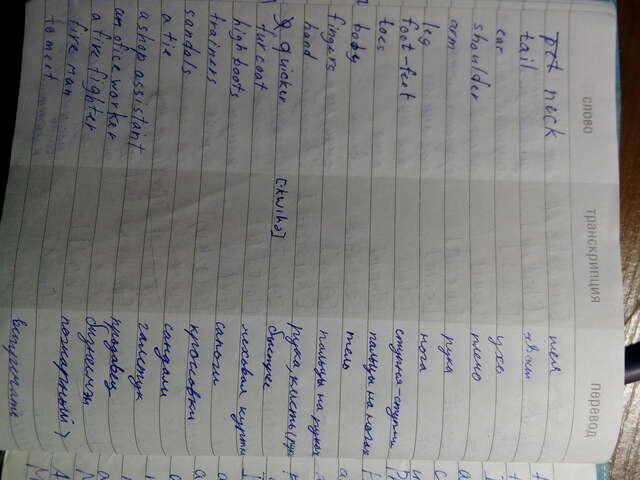 слово транскрипция перевод
neck шея
tail хвост
ear ухо
shoulder плечо
arm рука
leg нога
foot-feet ступня-ступни
toes пальцы на ногах
body тело
fingers пальцы на руках
hand рука, кисть
quicker [ˈkwikə] быстрее
fur coat меховая куртка
high boots сапоги
trainers кроссовки
sandals сандали
a tie галстук
a shop assistant продавец
an office worker бизнесмен
a fire fighter пожарный
fire man
to meet встречать